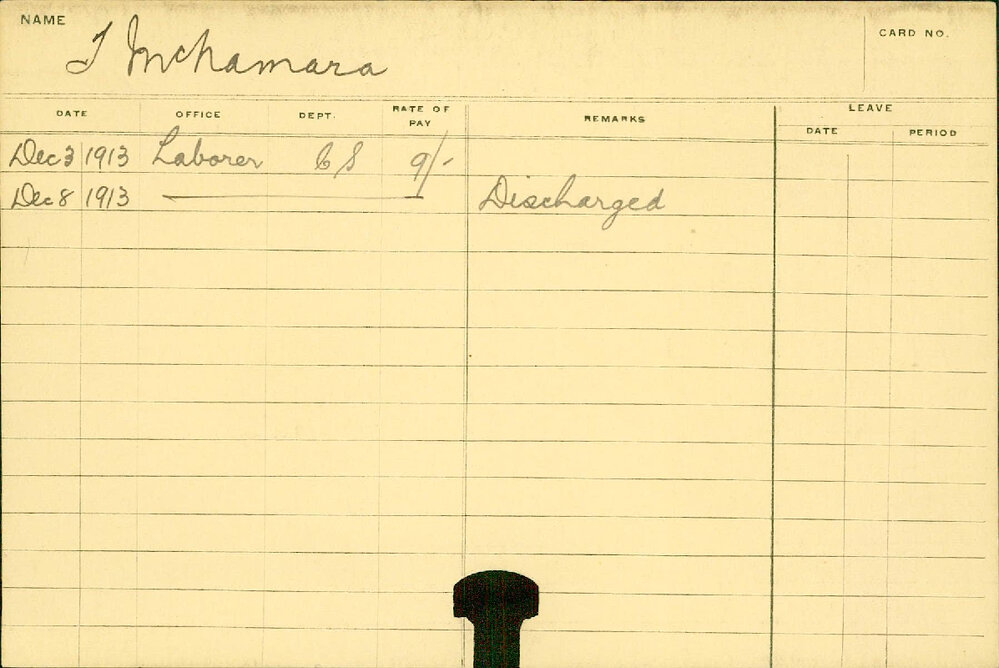 NAME T McNamara CARD NO.
DATE OFFICE DEPT. RATE OF PAY REMARKS LEAVE
DATE PERIOD
Dec 3 1913 Laborer C S 9/-
Dec 8 1913 — Discharged